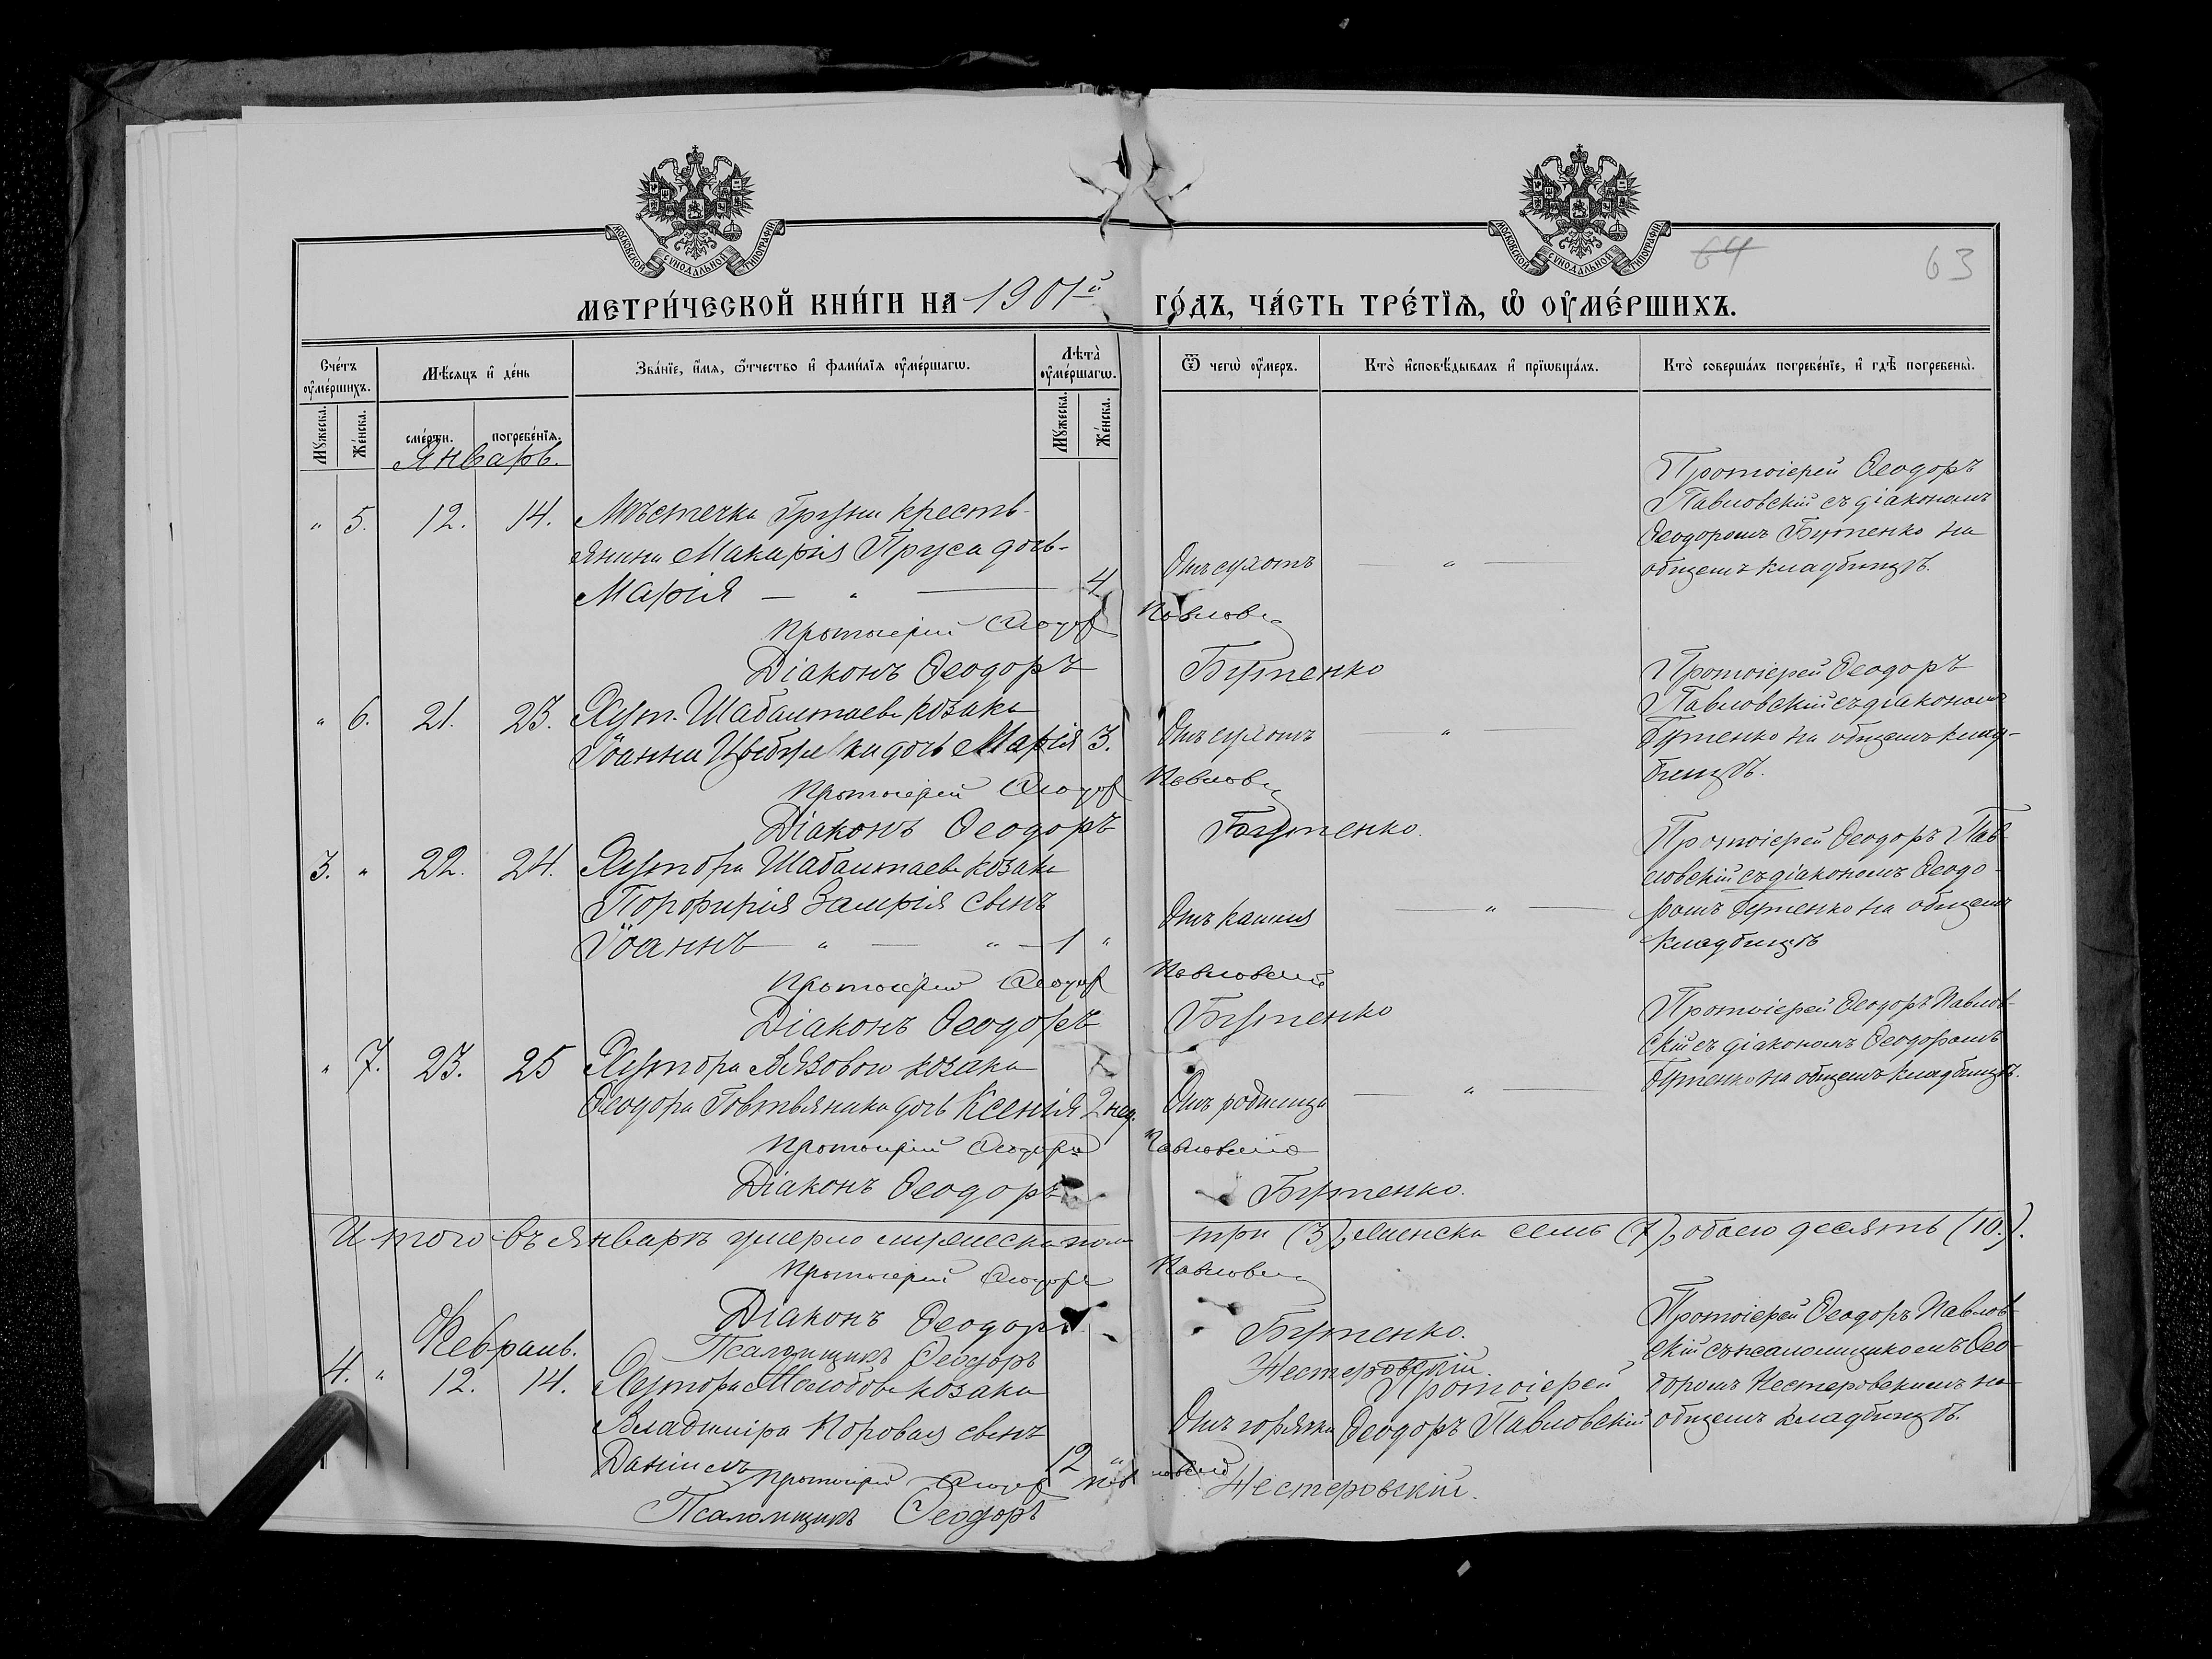 МОСКОВСКОЙ СУНОДАЛЬНОЙ ТИПОГРАФІИ
МОСКОВСКОЙ СУНОДАЛЬНОЙ ТИПОГРАФІИ
64
63
МЕТРИ́ЧЕСКОЙ КНИ́ГИ НА 1901й ГО́ДЪ, ЧА́СТЬ ТРЕ́ТЇѦ, Ѡ҆ ОУ҆МЕ́РШИХЪ.
Сче́тъ оу҆ме́ршихъ.
Мѣ́сяцъ и҆ де́нь
Зва́нїе, и҆́мѧ, ѻ҆́тчество и҆ фами́лїѧ оу҆ме́ршагѡ.
Лѣта̀ оу҆ме́ршагѡ.
Ѿ чегѡ̀ оу҆́меръ.
Кто̀ и҆сповѣ́дывалъ и҆ прїѡбща́лъ.
Кто̀ соверша́лъ погребе́нїе, и҆ гдѣ̀ погребены̀.
Мꙋ́жеска.
Же́нска.
сме́рти.
погребе́нїѧ.
Мꙋ́жеска.
Же́нска.
Январь.
" 5. 12. 14. Мѣстечка Груни кресть-
янина Макарія Пруса дочь-
Марія — " — 4
Отъ сухотъ — " —
Протоіерей Ѳеодоръ
Павловскій съ діакономъ
Ѳеодоромъ Бутенко на
общемъ кладбищѣ.
Протоіерей Ѳеодоръ Павловскій
Діаконъ Ѳеодоръ Бутенко
" 6. 21. 23. Хут. Шабалтаева козака
Іоанна Цыбул ки дочь Марія 3.
Отъ сухотъ — " —
Протоіерей Ѳеодоръ
Павловскій съ діакономъ
Бутенко на общемъ клад-
бищѣ.
Протоіерей Ѳеодоръ Павловскій
Діаконъ Ѳеодоръ Бутенко.
3. " 22. 24. Хутора Шабалтаева козака
Порфирія Замрія сынъ
Іоаннъ — " — " — 1 "
Отъ кашля — " —
Протоіерей Ѳеодоръ Пав-
ловскій съ діакономъ Ѳеодо-
ромъ Бутенко на общемъ
кладбищѣ
Протоіерей Ѳеодоръ Павловскій
Діаконъ Ѳеодоръ Бутенко
" 7. 23. 25 Хутора Вязового козака
Ѳеодора Говтвяника дочь Ксенія 2 нед.
Отъ родимца — " —
Протоіерей Ѳеодоръ Павлов-
скій съ діакономъ Ѳеодоромъ
Бутенко на общемъ кладбищѣ.
Протоіерей Ѳеодоръ Павловскій
Діаконъ Ѳеодоръ Бутенко.
Итого въ январѣ умерло мужеска пола три (3), женска семь (7), обоего десять (10.).
Протоіерей Ѳеодоръ Павловскій
Діаконъ Ѳеодоръ Бутенко.
Псаломщикъ Ѳеодоръ Нестеровскій
Февраль.
4. " 12. 14. Хутора Молодова козака
Владиміра Коровая сынъ
Даніилъ 12 "
Отъ горячки
Протоіерей
Ѳеодоръ Павловскій
Протоіерей Ѳеодоръ Павлов-
скій съ псаломщикомъ Ѳео-
доромъ Нестеровскимъ на
общемъ кладбищѣ.
Протоіерей Ѳеодоръ Павловскій
Псаломщикъ Ѳеодоръ Нестеровскій.